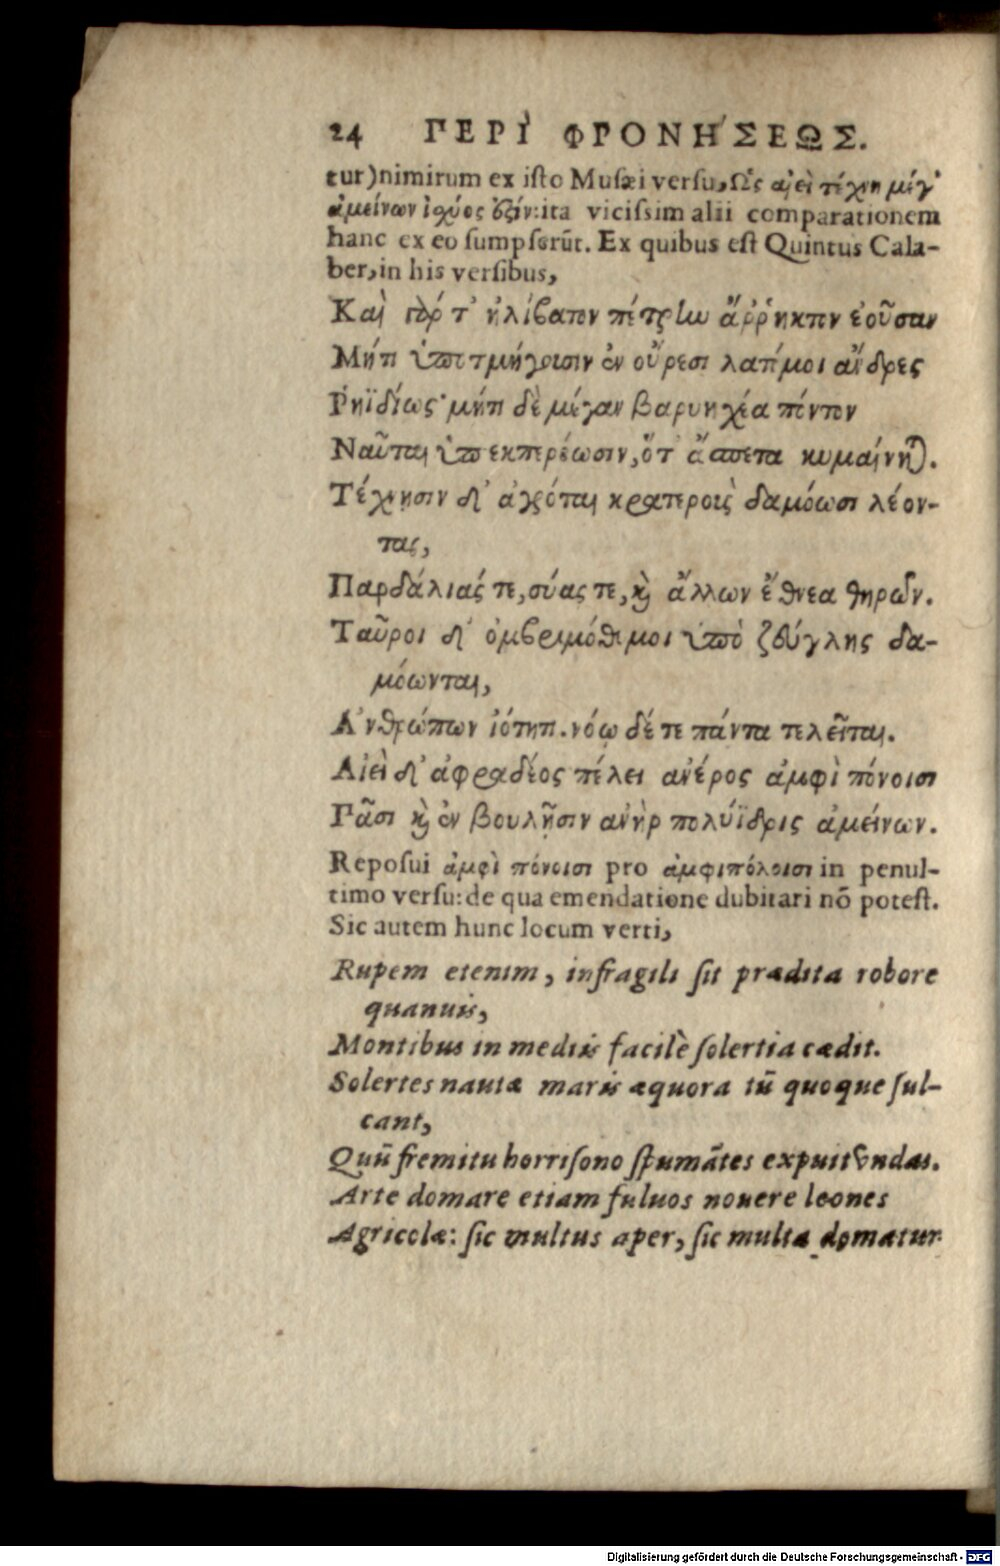 24 ΠΕΡῚ ΦΡΟΝΉΣΕΩΣ.
tur)nimirum ex iſto Muſæi verſu, Ὡς αἰεὶ τέχνη μέγ'
ἀμείνων ἰχύος ὅξίν:ita viciſsim alii comparationem
hanc ex eo ſumpſerūt. Ex quibus eſt Quintus Cala-
ber, in his verſibus,
Καὶ γὸρ τ' ἠλίβατον πέτρην ἄῤῥηκτον ἐοῦσαν
Μήτι ὑποτμήγουσιν ἐν οὔρεσι λατόμοι ἄνδρες
Ῥηϊδίως· μήτι δὲ μέγαν βαρυηχέα πόντον
Ναῦται ὑπεκπερόωσιν, ὅτ' ἄσπετα κυμαίνηται.
Τέχνησιν δ' ἀγρόται κρατεροὺς δαμόωσι λέον-
τας,
Παρδάλιάς τε, σύας τε, καὶ ἄλλων ἔθνεα θηρῶν.
Ταῦροι δ' ὀμβριμόθυμοι ὑπὸ ζεύγλης δα-
μόωνται,
Ἀνθρώπων ἰότητι. νόῳ δέ τε πάντα τελεῖται.
Αἰεὶ δ' ἀφραδέος πέλει ἀνέρος ἀμφὶ πόνοισι
Πᾶσι καὶ ἐν βουλῇσιν ἀνὴρ πολύϊδρις ἀμείνων.
Repoſui ἀμφὶ πόνοισι pro ἀμφιπόλοισι in penul-
timo verſu: de qua emendatione dubitari nō poteſt.
Sic autem hunc locum verti,
Rupem etenim, infragili ſit prædita robore
quanuis,
Montibus in mediis facilè ſolertia cædit.
Solertes nautæ maris æquora tū quoque ſul-
cant,
Quū fremitu horriſono ſpumātes expuit vndas.
Arte domare etiam fuluos nouere leones
Agricolæ: ſic multus aper, ſic multa domatur
Digitalisierung gefördert durch die Deutsche Forschungsgemeinschaft - DFG